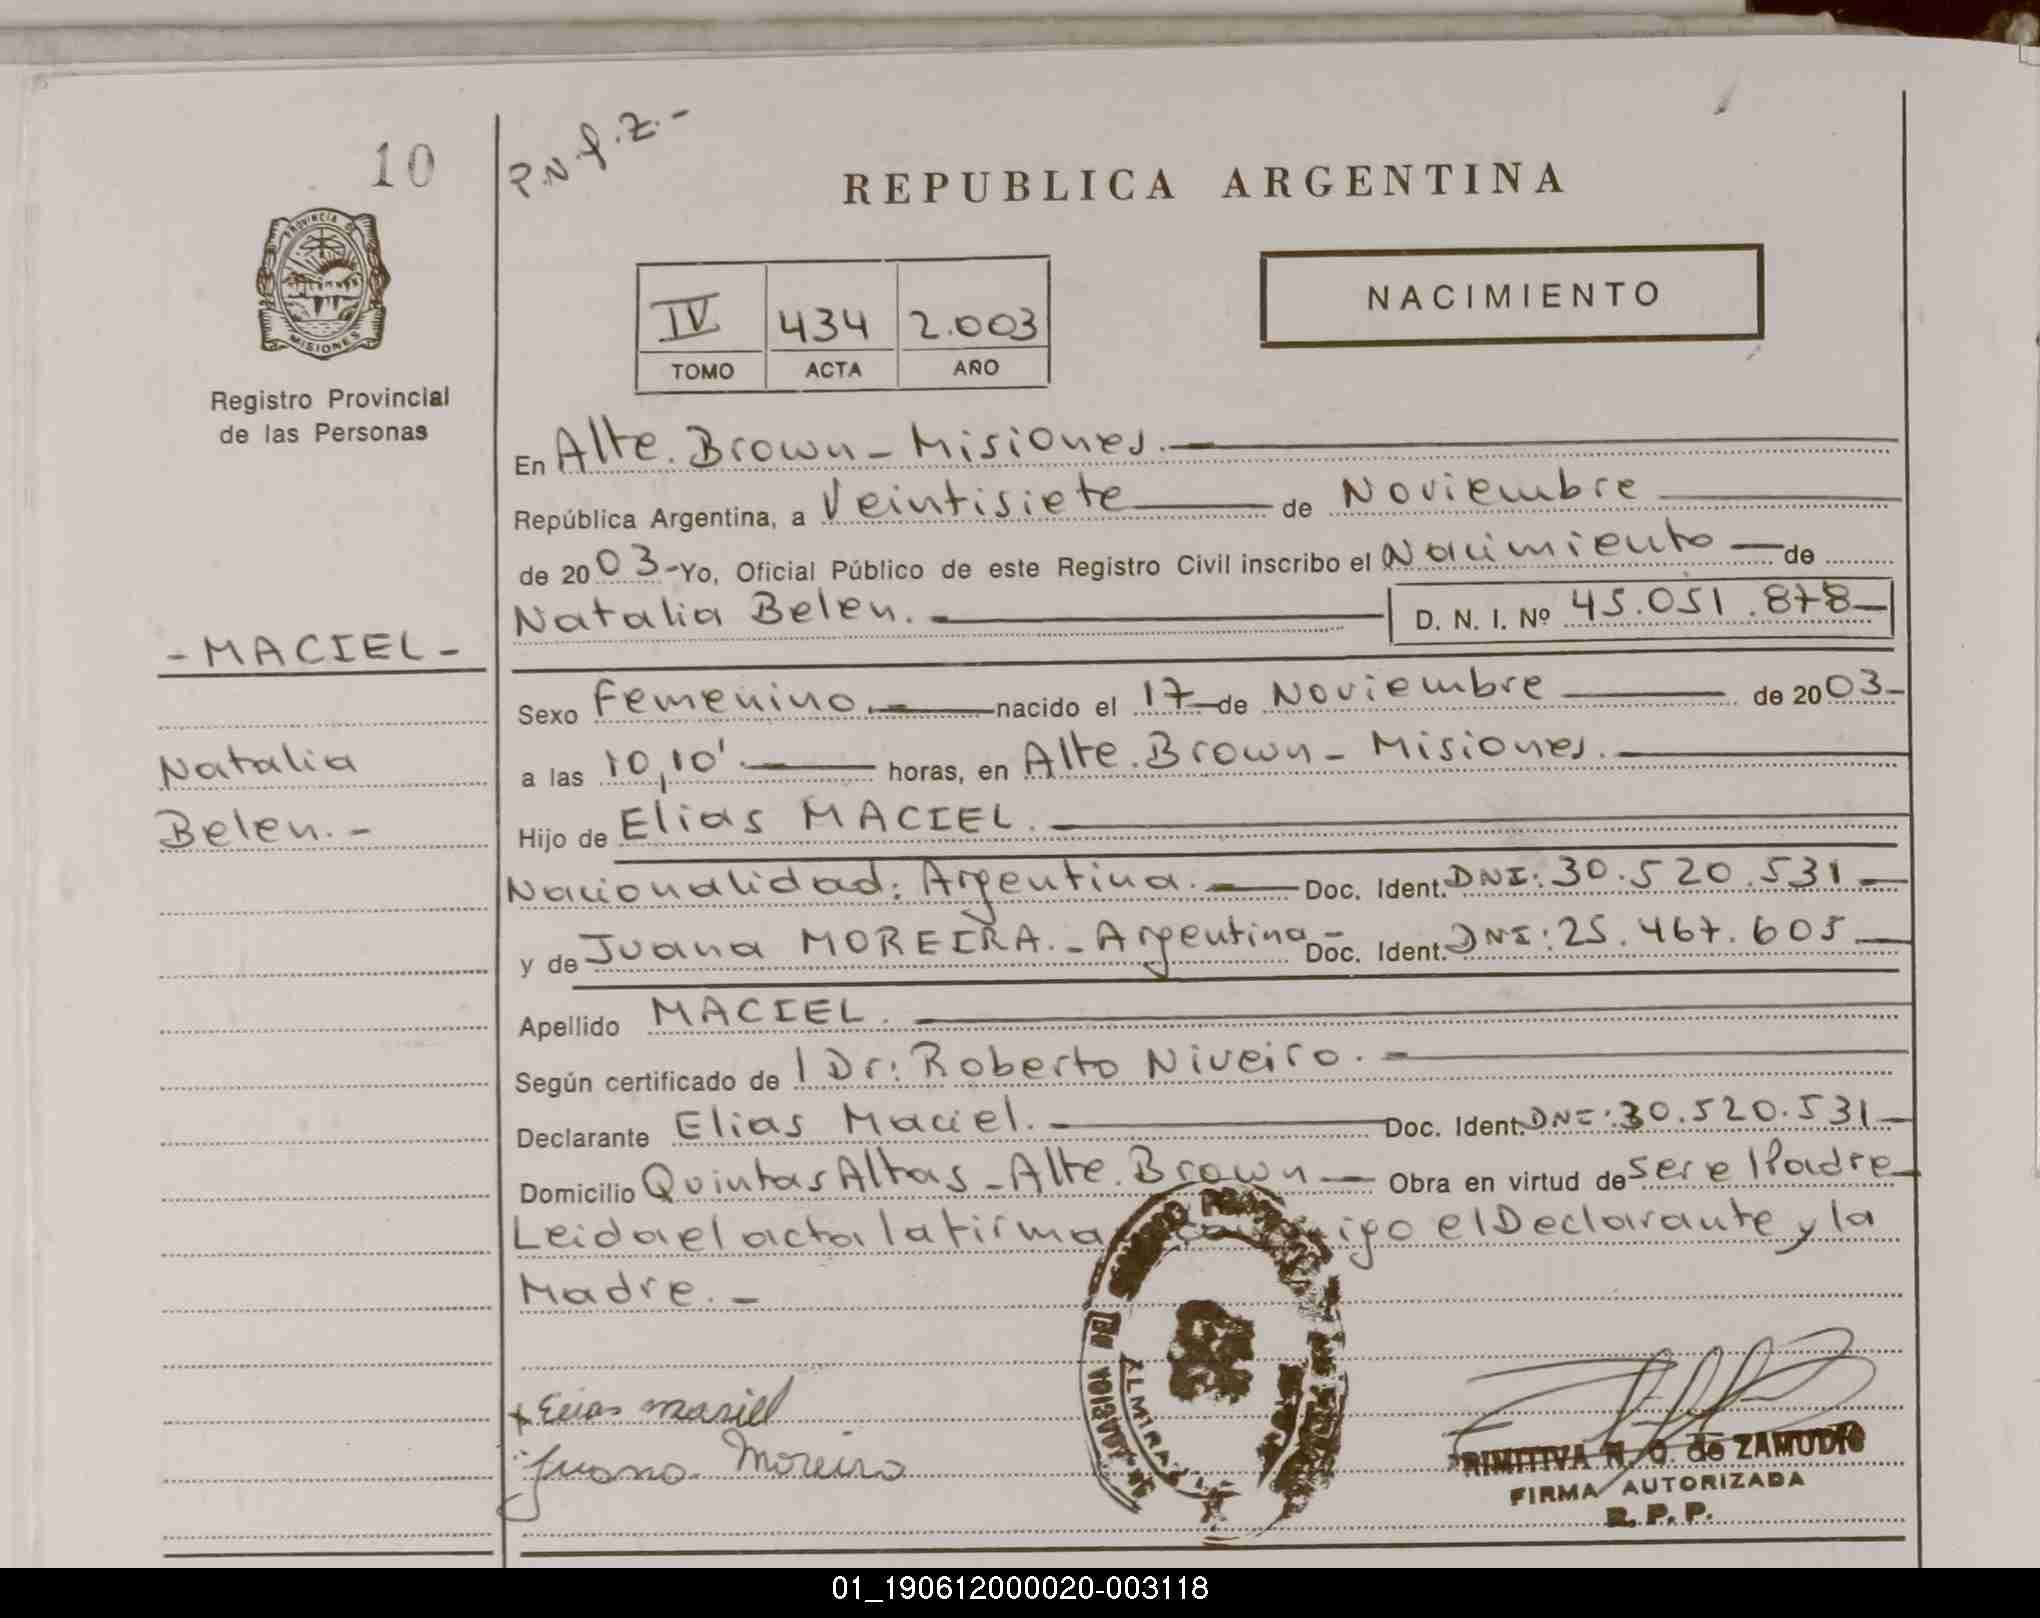 10
P.N.f.Z.-
REPUBLICA ARGENTINA
PROVINCIA DE
MISIONES
NACIMIENTO
IV 434 2.003
TOMO ACTA AÑO
Registro Provincial
de las Personas
En Alte. Brown - Misiones.-
República Argentina, a Veintisiete de Noviembre
de 2003-Yo, Oficial Público de este Registro Civil inscribo el Nacimiento de
Natalia Belen.- D. N. I. Nº 45.051.878-
-MACIEL-
Sexo Femenino.- nacido el 17 de Noviembre de 2003-
Natalia
a las 10,10'.- horas, en Alte. Brown - Misiones.-
Belen.-
Hijo de Elias MACIEL.-
Nacionalidad: Argentina.- Doc. Ident. DNI: 30.520.531-
y de Juana MOREIRA.- Argentina- Doc. Ident. DNI: 25.467.605-
Apellido MACIEL.-
Según certificado de l Dr: Roberto Niveiro.-
Declarante Elias Maciel.- Doc. Ident. DNI: 30.520.531-
Domicilio Quintas Altas - Alte. Brown - Obra en virtud de ser el Padre-
Leida el acta la firma conmigo el Declarante y la
Madre.-
+ Elias masiel
Juana Moreira
DEL
ALMIRA
N. O. de ZAMUDIO
FIRMA AUTORIZADA
R. P. P.
01_190612000020-003118